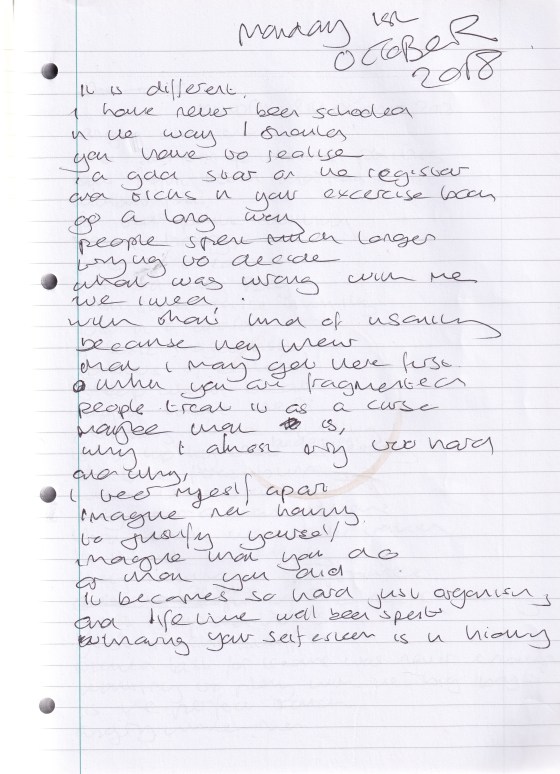 Monday 1st
OCTOBER
2018
It is different.
I have never been schooled
in the way I should
you have to realise
a gold star on the register
and ticks in your excercise book
go a long way
people spent much longer
trying to decide
what was wrong with me
we lived.
with that kind of insanity
because they knew
that I may get here first.
when you are fragmented
people treat it as a curse
maybe that is,
why I almost try too hard
and why,
I beet myself apart
imagine not having
to justify yourself
imagine what you do
or what you did
It becomes so hard just organising
and life time well been spent
knowing your self esteem is in hiding